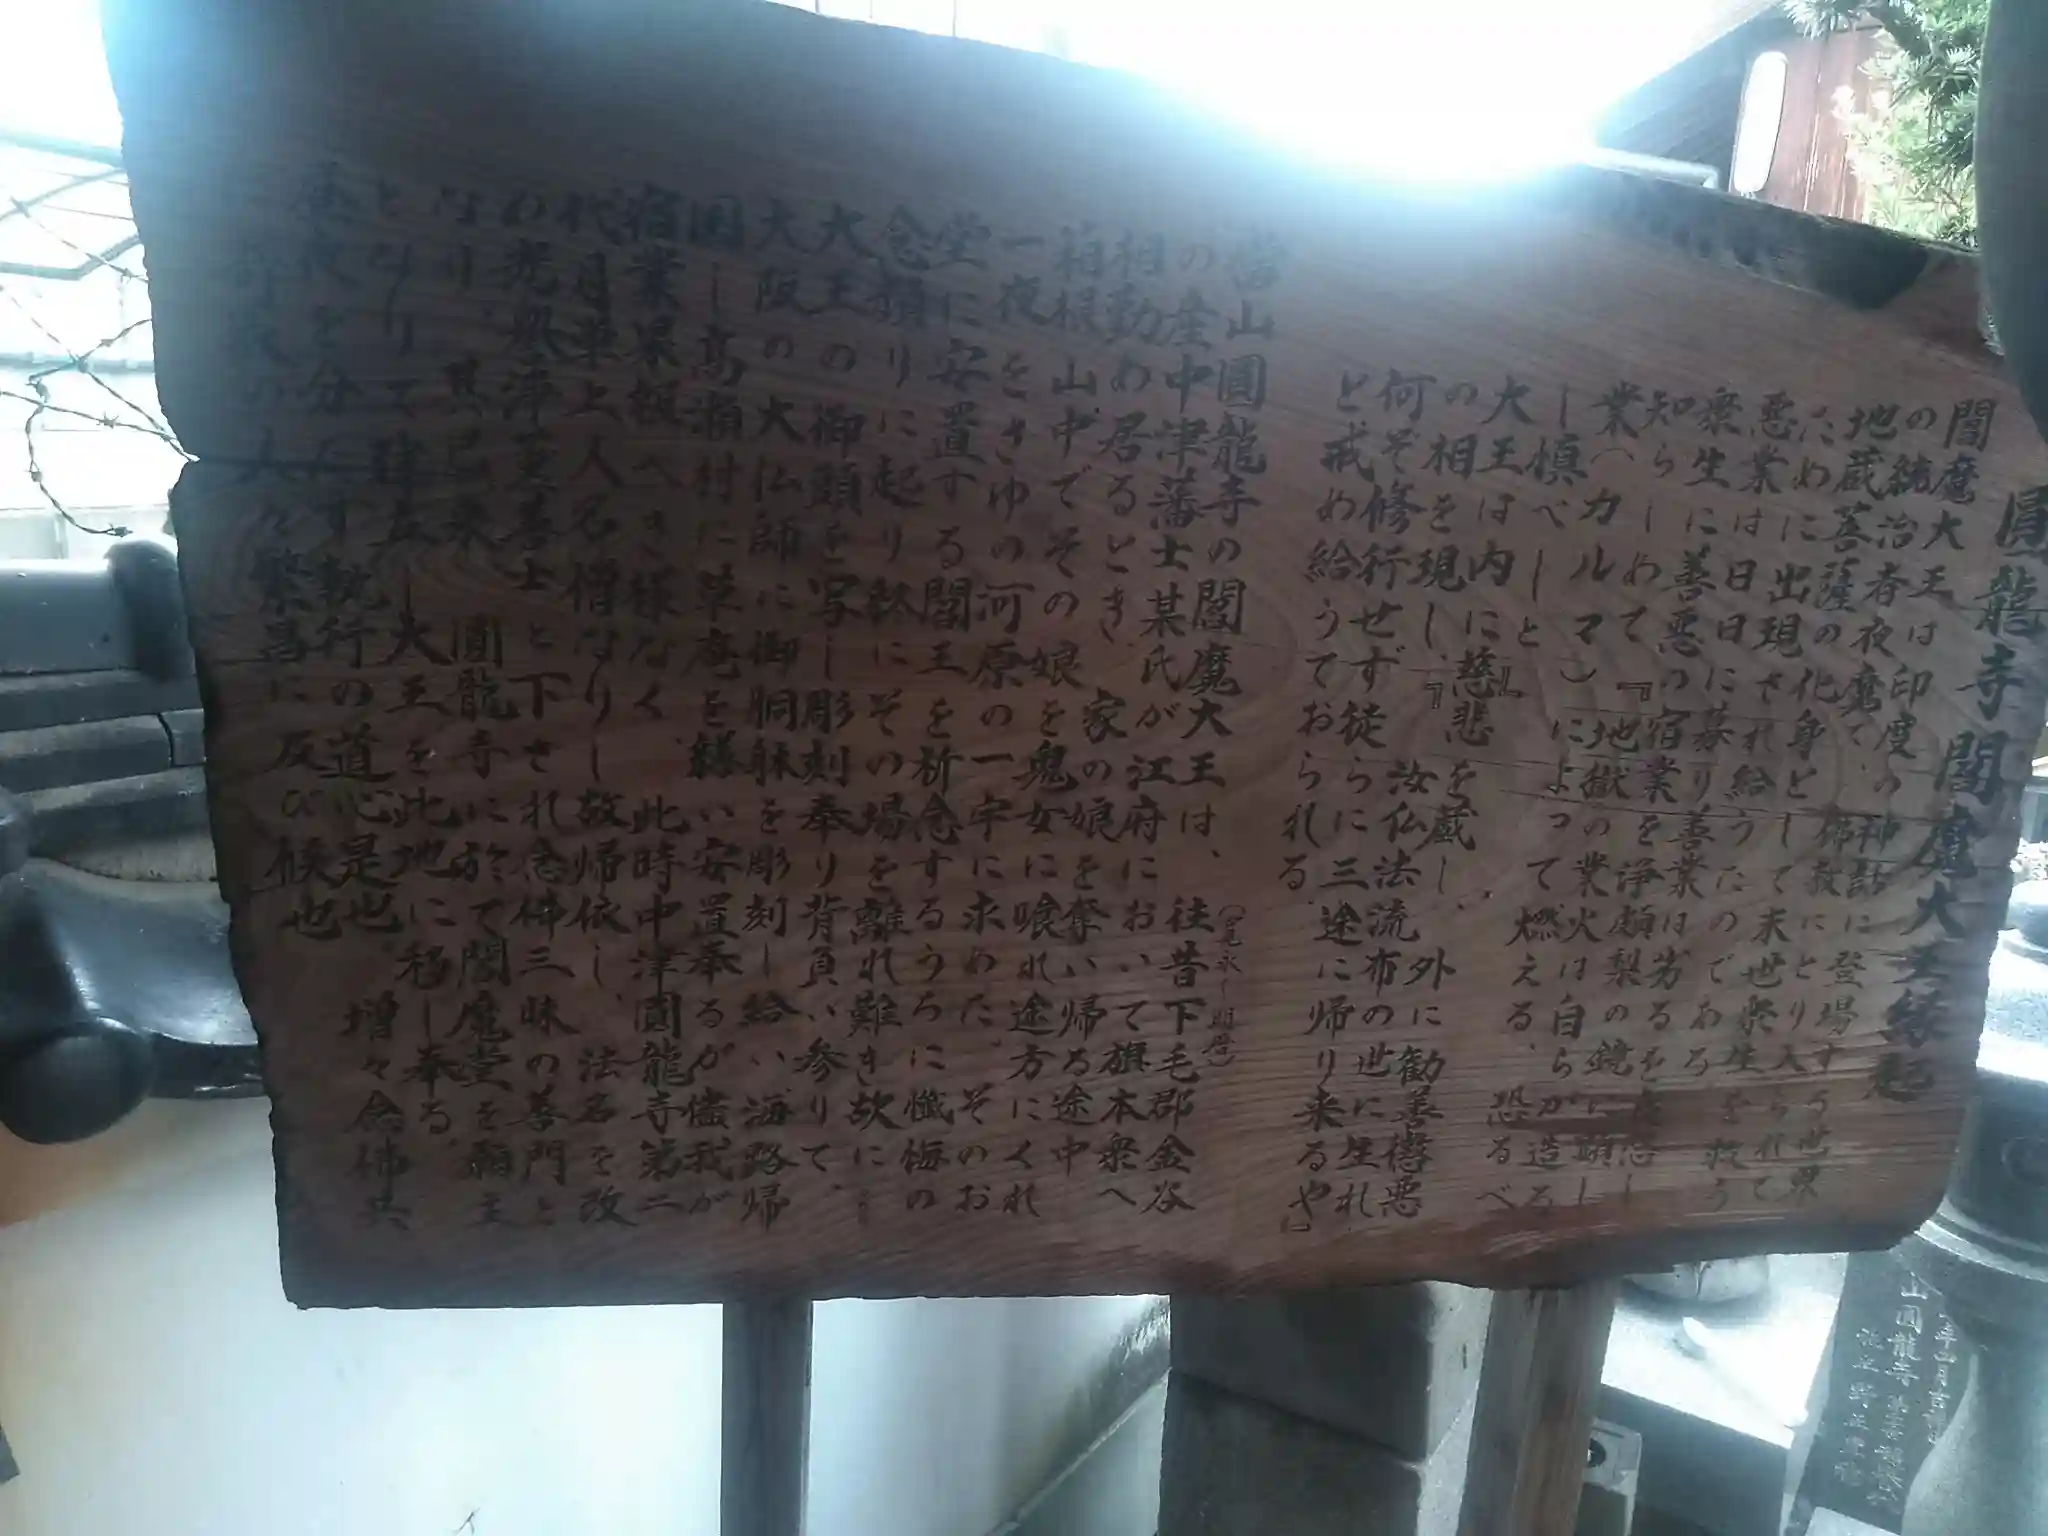 圓龍寺閻魔大王縁起
閻魔大王は印度の神話に登場する世界
の統治者夜魔で、佛教にとり入られて
地蔵菩薩の化身として末世衆生を救う
ために出現され給うたのである
悪業は日日に募り善業は劣るを
衆生に善悪の宿業を浄頗梨の鏡に顕し
知らしめて『地獄の業火は自らが造る
業(カルマ)によって燃える、恐るべ
し慎べしと』
大王は内に慈悲を蔵し、外に勧善懲悪
の相を現し、『汝仏法流布の世に生れ
何ぞ修行せず徒らに三途に帰り来るや』
と戒め給うておられる
當山圓龍寺の閻魔大王は、往昔下毛郡金谷
の産中津藩士某氏が江府において旗本衆へ
相勤め居るとき、家の娘を奪い帰る途中
箱根山中でその娘を鬼女に喰れ途方にくれ
一夜をさゆの河原の一宇に求めた。そのお
堂に安置する閻王を祈念するうちに懺悔の
念頻りに起り終にその場を離れ難き故に
大王の御頭を写し彫刻奉り背負い参りて、
大阪の大仏師に御胴躰を彫刻し給い海路帰
国し高瀬村に草庵を繕い安置奉るが儘我が
宿業果報へき様なく、此時中津圓龍寺第二
代月単上人名僧なりし故帰依し、法名を改
め光誉浄更善士と下され念佛三昧の善門と
なり、其已来圓龍寺に於て閻魔堂を願主
となりて建立し大王を此地に移し奉る。
昼夜を分たず執行の道心是也。増々念佛共
人々繁昌に反び候也